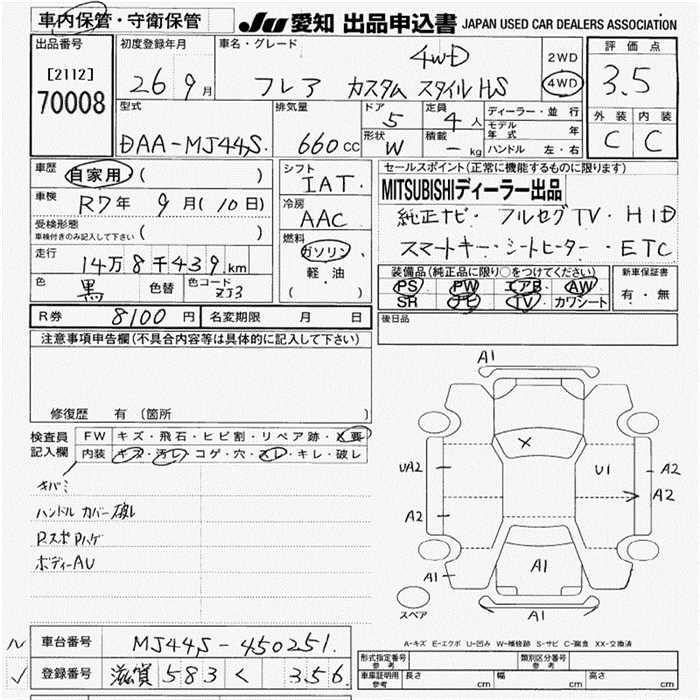 車内保管・守衛保管 JU 愛知 出品申込書 JAPAN USED CAR DEALERS ASSOCIATION
出品番号 初度登録年月 車名・グレード 4WD 2WD 評価点
[2112] 70008 26 9月 フレア カスタム スタイル HS 4WD 3.5
型式 排気量 ドア 定員 ディーラー・並行 外装 内装
DAA-MJ44S. 660cc 5 4人 モデル年式 年 C C
形状 W 積載 -kg ハンドル 左・右
車歴 自家用 ( ) シフト IAT. セールスポイント(正常に機能するものに限ります)
車検 R7年 9月(10日) 冷房 AAC MITSUBISHIディーラー出品
受検形態 車検付きのみ記入して下さい ( ) 純正ナビ・フルセグTV・HID
走行 14万8千439km 燃料 ガソリン 軽油 ( ) スマートキー・シートヒーター・ETC
色 黒 色替 色コード ZJ3 装備品(純正品に限り○をつけてください) 新車保証書
PS PW エアB AW 有・無
SR ナビ TV カワシート
R券 8100円 名変期限 月 日 後日品
注意事項申告欄(不具合内容等は具体的に記入して下さい)
修復歴 有 (箇所 )
検査員記入欄 FW キズ・飛石・ヒビ割・リペア跡・X要
内装 キズ・汚レ・コゲ・穴・スレ・キレ・破レ
キバミ
ハンドル カバー破レ
P.スポPハゲ
ボディーAU
A1
X
UA2 U1 A2
A2
A2
A1 A1
スペア A1
A-キズ E-エクボ U-凹み W-補修跡 S-サビ C-腐食 XX-交換済
車台番号 MJ44S-450251.
登録番号 滋賀 583 く 356
形式指定番号 参考 類別区分番号 参考
車庫証明用 参考 長さ cm 幅 cm 高さ cm